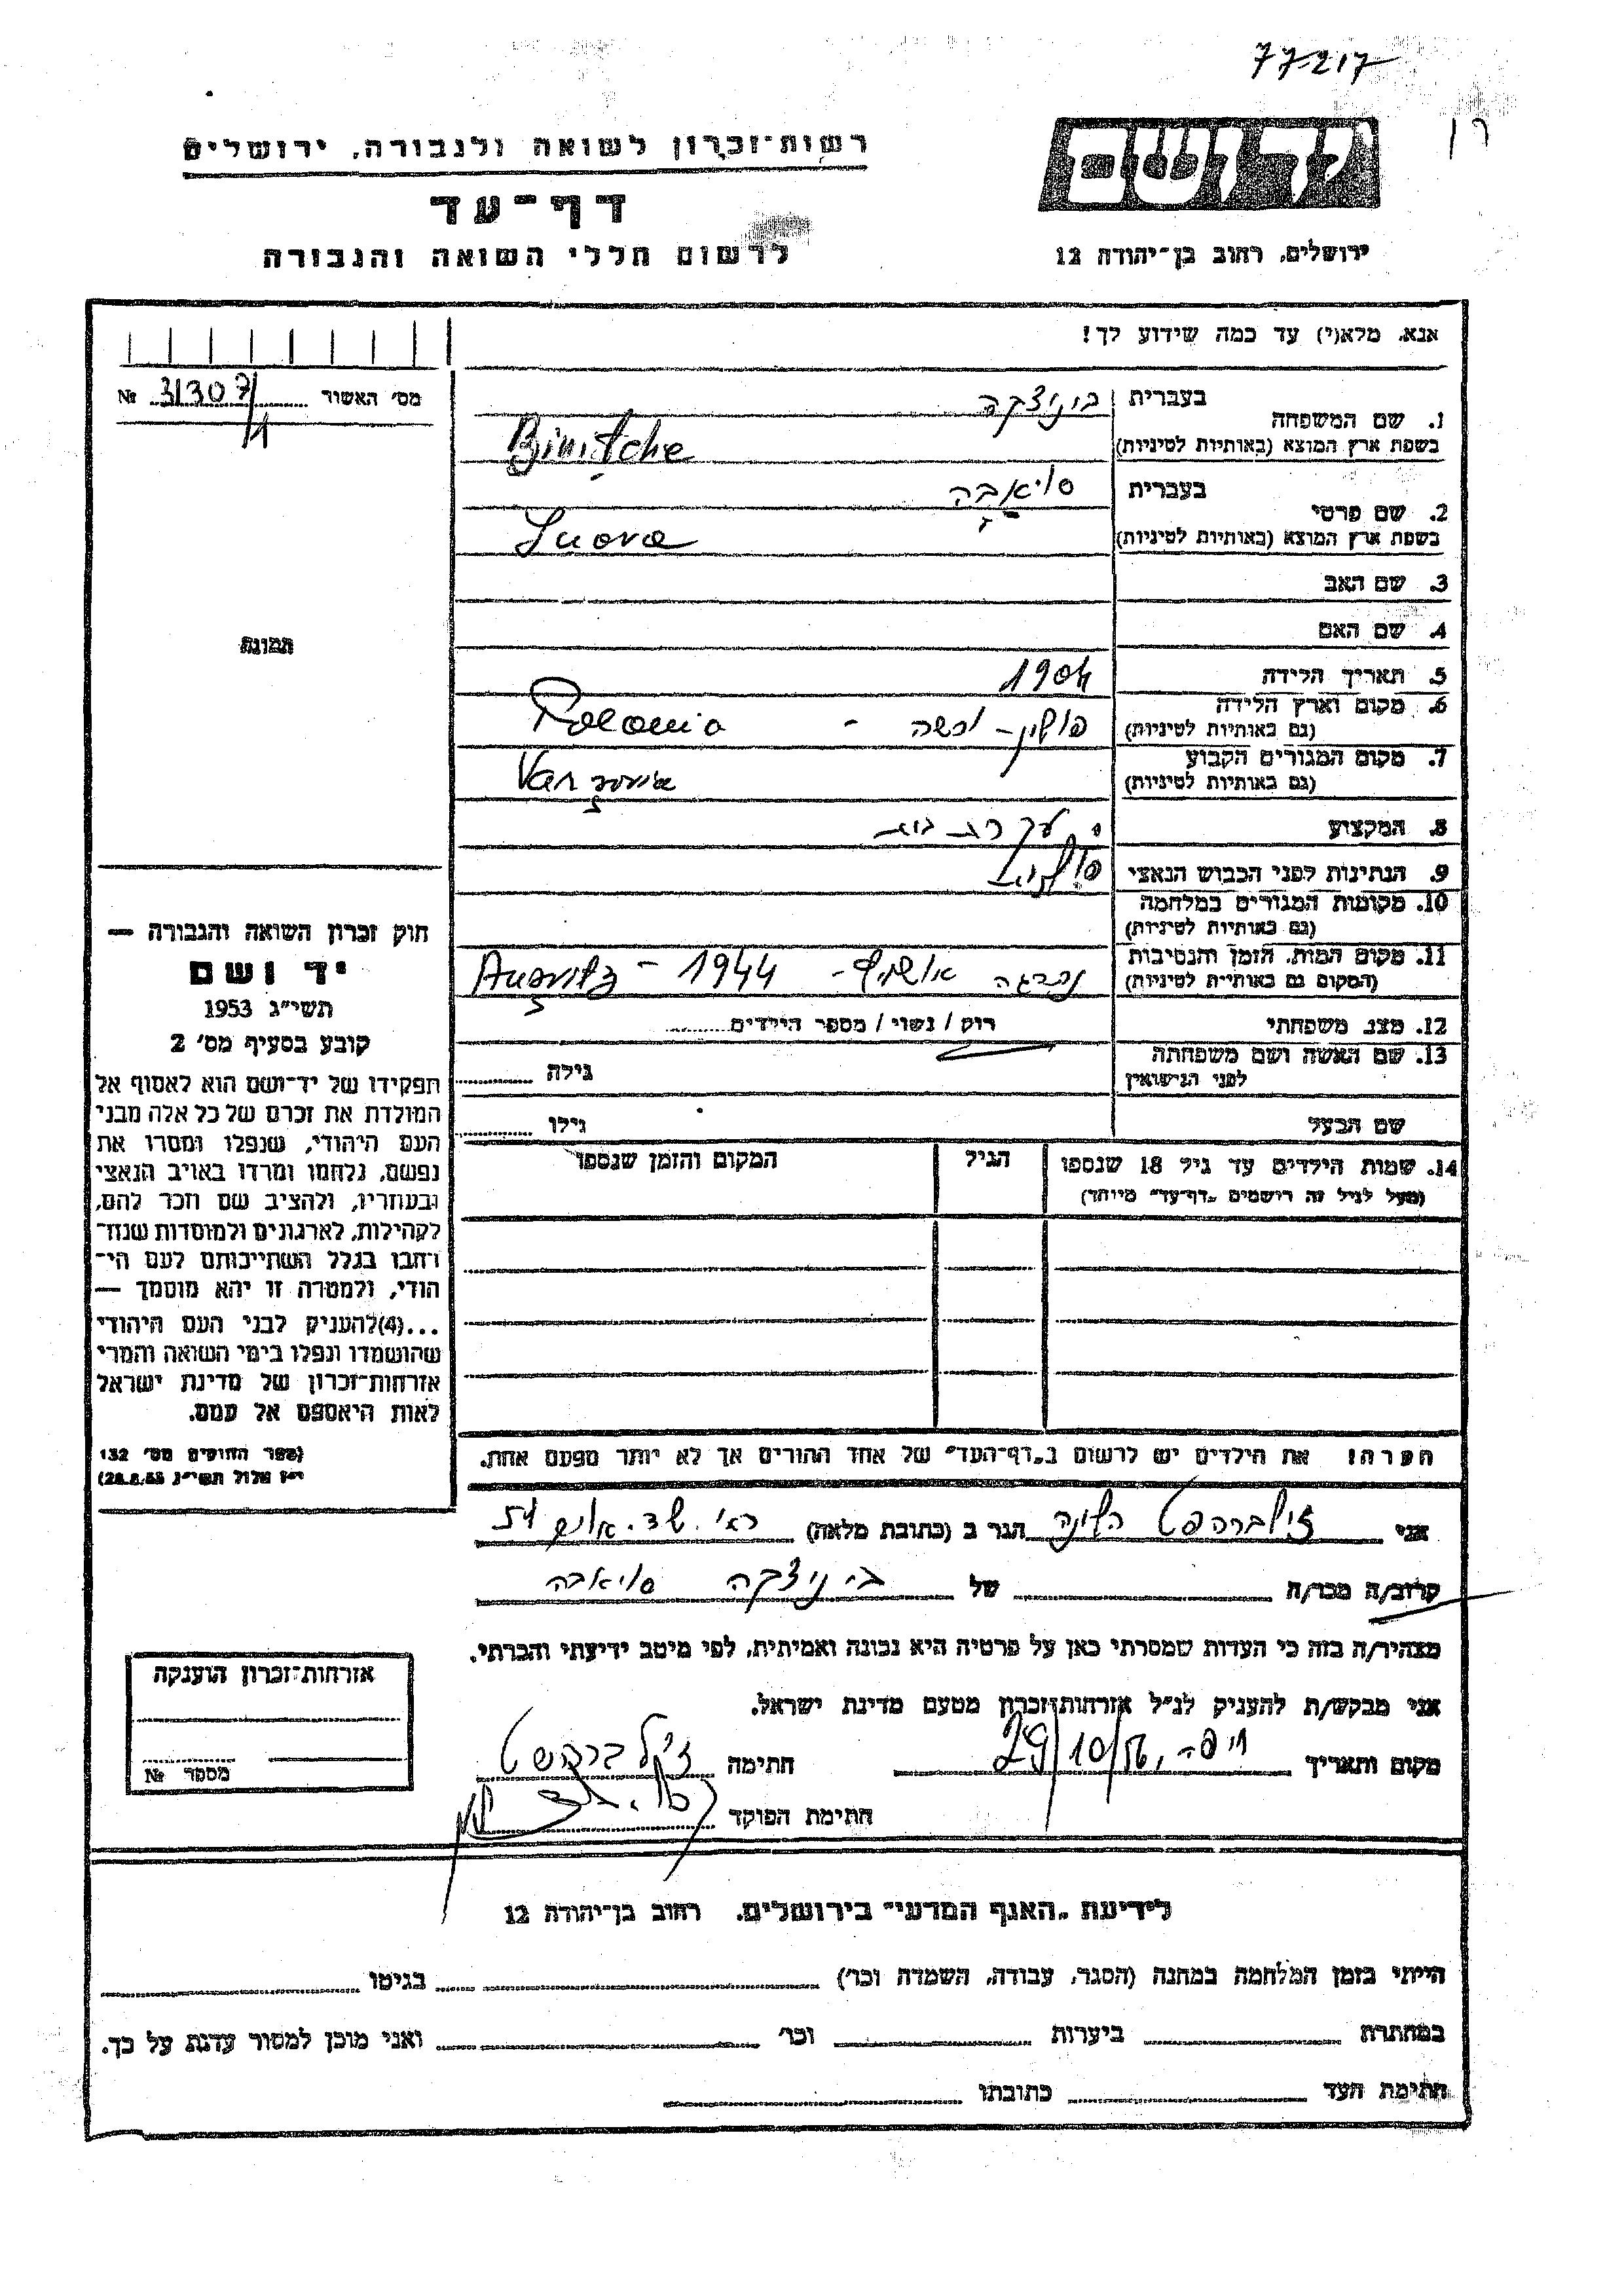 77217
רשות־זכרון לשואה ולגבורה, ירושלים
יד ושם
דף־עד
לרשום חללי השואה והגבורה
ירושלים, רחוב בן־יהודה 12
אנא, מלא(י) עד כמה שידוע לך!
מס׳ האשור 31307 №
1. שם המשפחה
בעברית בינוצקה
בשפת ארץ המוצא (באותיות לטיניות) Binitche
2. שם פרטי
בעברית סויאבה
בשפת ארץ המוצא (באותיות לטיניות)
3. שם האב
4. שם האם
תמונה
5. תאריך הלידה 1904
6. מקום וארץ הלידה פולין - ורשה - Polonia
(גם באותיות לטיניות)
7. מקום המגורים הקבוע
(גם באותיות לטיניות)
8. המקצוע עקרת בית
9. הנתינות לפני הכבוש הנאצי פולנית
10. מקומות המגורים במלחמה
(גם באותיות לטיניות)
11. מקום המות, הזמן והנסיבות נהרגה אושויץ - 1944 -
(המקום גם באותיות לטיניות)
12. מצב משפחתי רוק / נשוי / מספר הילדים
13. שם האשה ושם משפחתה
לפני הנישואין גילה
שם הבעל גילו
14. שמות הילדים עד גיל 18 שנספו הגיל המקום והזמן שנספו
(מעל לגיל זה רושמים „דף־עד" מיוחד)
חוק זכרון השואה והגבורה —
יד ושם
תשי״ג 1953
קובע בסעיף מס׳ 2
תפקידו של יד־ושם הוא לאסוף אל
המולדת את זכרם של כל אלה מבני
העם היהודי, שנפלו ומסרו את
נפשם, נלחמו ומרדו באויב הנאצי
ובעוזריו, ולהציב שם וזכר להם,
לקהילות, לארגונים ולמוסדות שנח־
רבו בגלל השתייכותם לעם הי־
הודי, ולמטרה זו יהא מוסמך —
...(4) להעניק לבני העם היהודי
שהושמדו ונפלו בימי השואה והמרי
אזרחות־זכרון של מדינת ישראל
לאות היאספם אל עמם.
(ספר החוקים מס׳ 132
י״ז אלול תשי״ג 28.8.53)
הערה! את הילדים יש לרשום ב„דף־העד" של אחד ההורים אך לא יותר מפעם אחת.
אני זילברפסט הגר ב (כתובת מלאה) 54
קרוב/ה מכר/ה של בינוצקה סויאבה
מצהיר/ה בזה כי העדות שמסרתי כאן על פרטיה היא נכונה ואמיתית, לפי מיטב ידיעתי והכרתי.
אני מבקש/ת להעניק לנ״ל אזרחות־זכרון מטעם מדינת ישראל.
מקום ותאריך חיפה, 29/10/56 חתימה
חתימת הפוקד
אזרחות־זכרון הוענקה
מספר №
לידיעת „האגף המדעי" בירושלים, רחוב בן־יהודה 12
הייתי בזמן המלחמה במחנה (הסגר, עבודה, השמדה וכו׳) בגיטו
במחתרת ביערות וכו׳ ואני מוכן למסור עדות על כך.
חתימת העד כתובתו